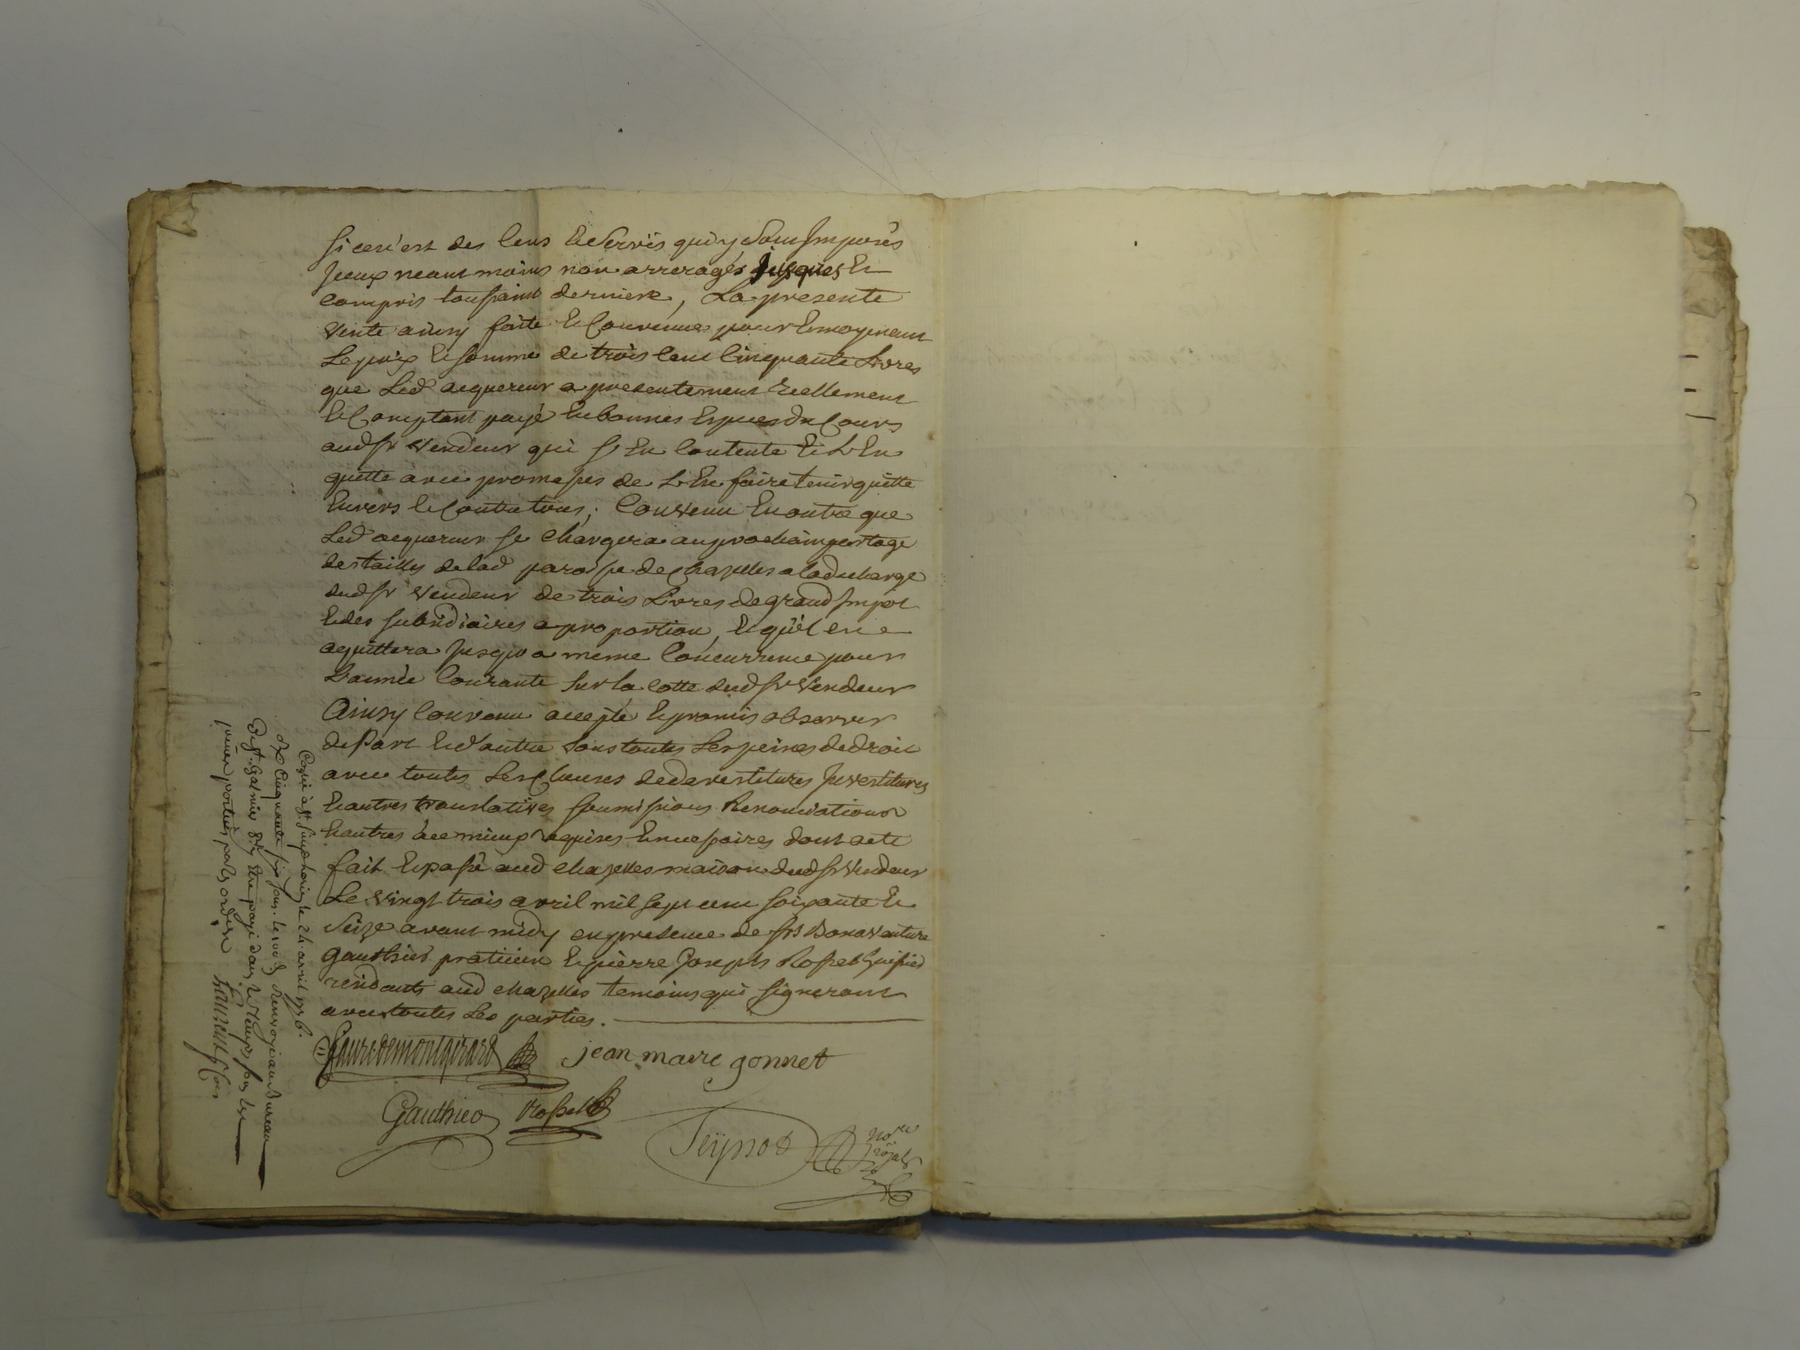 si ce n'est des cens et servis qui y sont imposés
iceux neantmoins non arreragés jusques et
compris toussaint derniere, La presente
vente ainsy faite et convenue pour et moyenant
Le prix et somme de trois cent cinquante Livres
que Led acquereur a presentement reellement
et comptant payé en bonnes especes du cours
aud sr vendeur qui s'en contente et l'en
quitte avec promesses de l'en faire tenir quitte
envers et contre tous; convenu en outre que
Led acquereur se chargera au prochain
des tailles de lad paroisse de chazelles a la decharge
dud sr vendeur de trois Livres de grand impot
et des subsidiaires a proportion, et qu'il en
aquittera jusqu'a meme concurrence pour
L'année courante sur la cotte dud sr vendeur
Ainsy convenu accepté et promis observer
de part et d'autre sous toutes Les peines de droit
avec toutes Les clauses de devestitures investitures
et autres translatives soumissions Renonciations
et autres à ce mieux requises et necessaires dont acte
fait et passé aud chazelles maison dud sr vendeur
Le vingt trois avril mil sept cent soixante et
seize avant midy en presence de srs Bonaventure
Gauthier praticien et pierre Joseph Rosset huissier
residants aud chazelles temoins qui signeront
avec toutes Les parties.
Faure de montgirard jean marc gonnet
Gauthier Rosset
Teyssot nore
royal
Controllé à St Simphorien le 24 avril 1776.
cinquante six sous. et renvoyé au Bureau
de St. Galmier pour etre payé dans le temps sous les
peines portées par les ordces